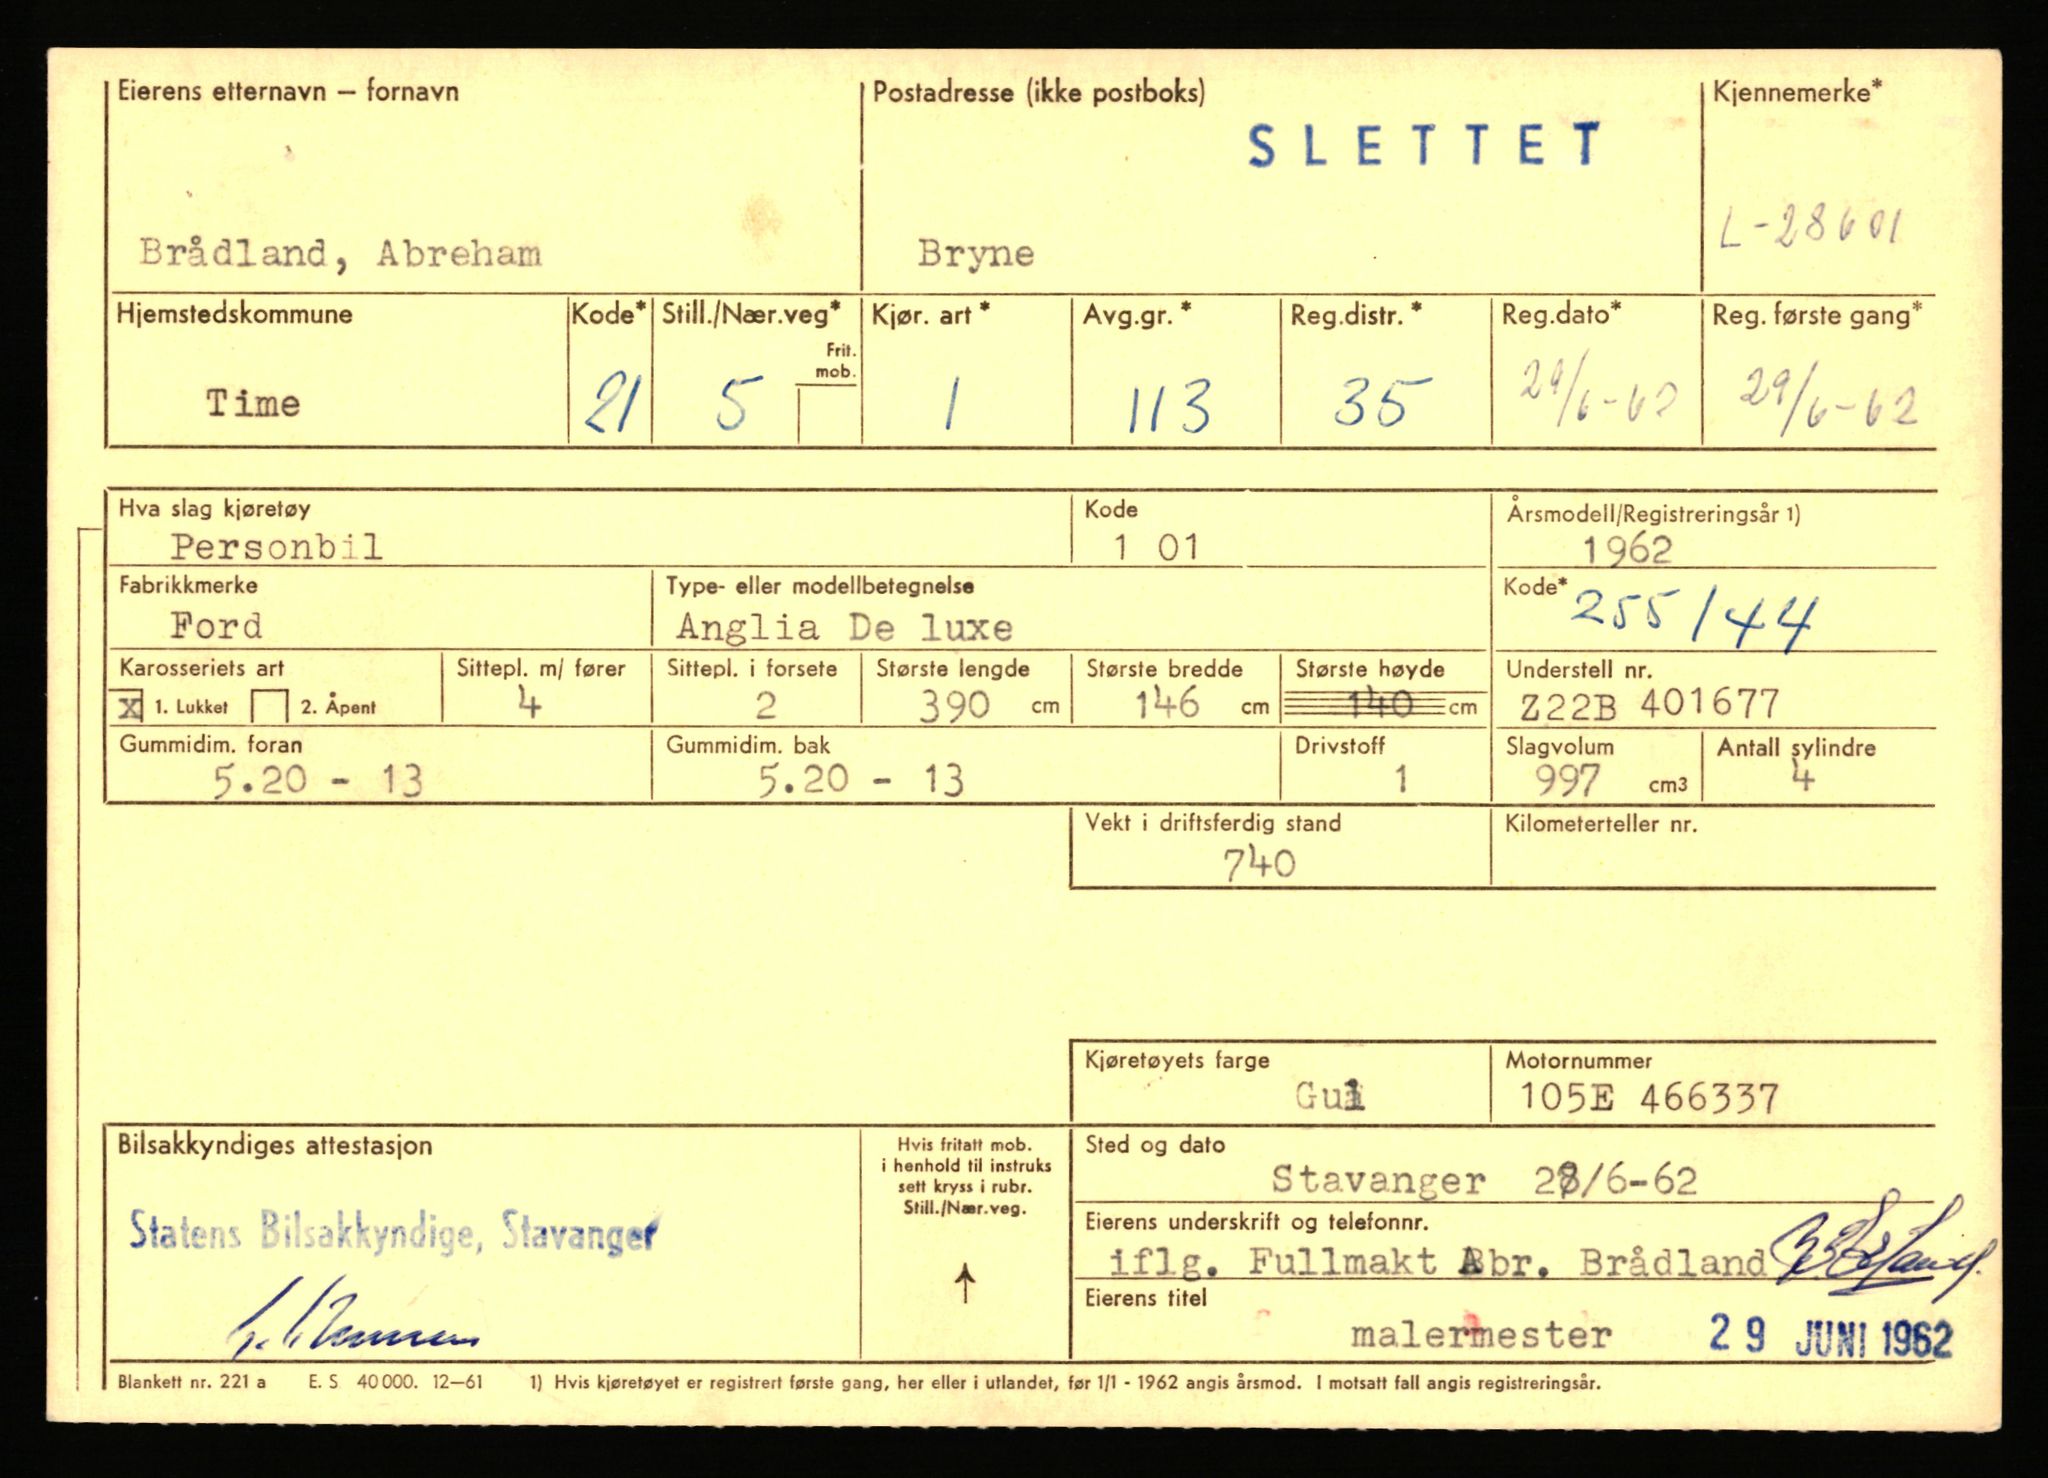 Eierens etternavn – fornavn
Postadresse (ikke postboks)
Kjennemerke*
SLETTET
Brådland, Abreham
Bryne
L-28601
Hjemstedskommune
Kode*
Still./Nær.veg*
Frit. mob.
Kjør. art *
Avg.gr. *
Reg.distr. *
Reg.dato*
Reg. første gang*
Time
21
5
1
113
35
29/6-62
29/6-62
Hva slag kjøretøy
Kode
Årsmodell/Registreringsår 1)
Personbil
1 01
1962
Fabrikkmerke
Type- eller modellbetegnelse
Kode*
Ford
Anglia De luxe
255/44
Karosseriets art
Sittepl. m/ fører
Sittepl. i forsete
Største lengde
Største bredde
Største høyde
Understell nr.
X 1. Lukket
2. Åpent
4
2
390 cm
146 cm
140 cm
Z22B 401677
Gummidim. foran
Gummidim. bak
Drivstoff
Slagvolum
Antall sylindre
5.20 - 13
5.20 - 13
1
997 cm3
4
Vekt i driftsferdig stand
Kilometerteller nr.
740
Kjøretøyets farge
Motornummer
Gul
105E 466337
Bilsakkyndiges attestasjon
Hvis fritatt mob.
i henhold til instruks
sett kryss i rubr.
Still./Nær.veg.
Sted og dato
Stavanger 28/6-62
Statens Bilsakkyndige, Stavanger
Eierens underskrift og telefonnr.
iflg. Fullmakt Abr. Brådland
Eierens titel
malermester
29 JUNI 1962
Blankett nr. 221 a E. S 40 000. 12–61 1) Hvis kjøretøyet er registrert første gang, her eller i utlandet, før 1/1 - 1962 angis årsmod. I motsatt fall angis registreringsår.